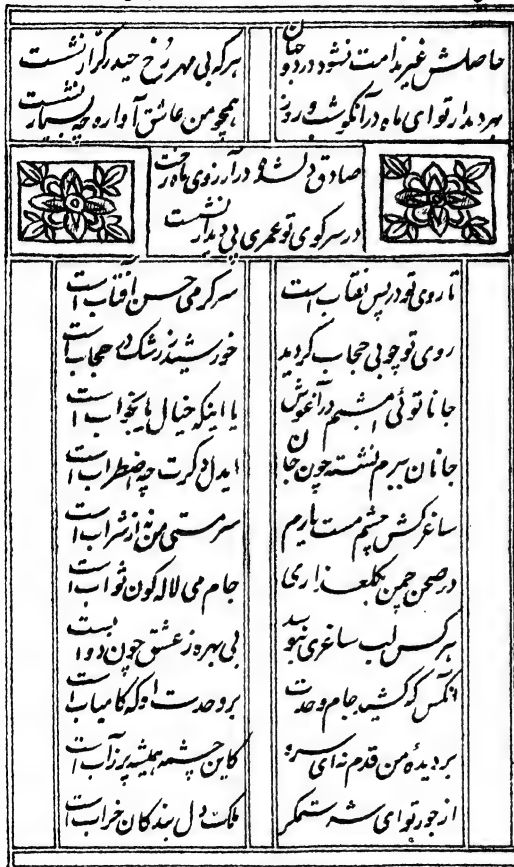 حاصلش غیر ندامت نشود در دو جهان هرکه بی مهر رخ حیدر کرار نشست
بهر دیدار تو ای ماه در آن گوشب و روز همچو من عاشق آواره چه بسیار نشست
صادق دلشده در آرزوی ماه رخت
در سر کوی تو عمری پی دیدار نشست
تا روی تو در پس نقاب است سر گرمی حسن آفتاب است
روی تو چو بی حجاب گردید خورشید ز رشک در حجاب است
جانا توئی امشبم در آغوش یا اینکه خیال یا بخواب است
جانان ببرم نشسته چون جان ایدل دگرت چه اضطراب است
ساغر کش چشم مست یارم سرمستی من نه از شراب است
در صحن چمن بگلعذاری جام می لاله کون ثواب است
هر کس لب ساغری نبوسید بی بهره ز عشق چون دواب است
آنکس که کشید جام وحدت بر وحدت او که کامیاب است
بر دیده من قدم نه ای سرو کاین چشمه همیشه پر ز آب است
از جور تو ای شه ستمگر ملک دل بندکان خراب است